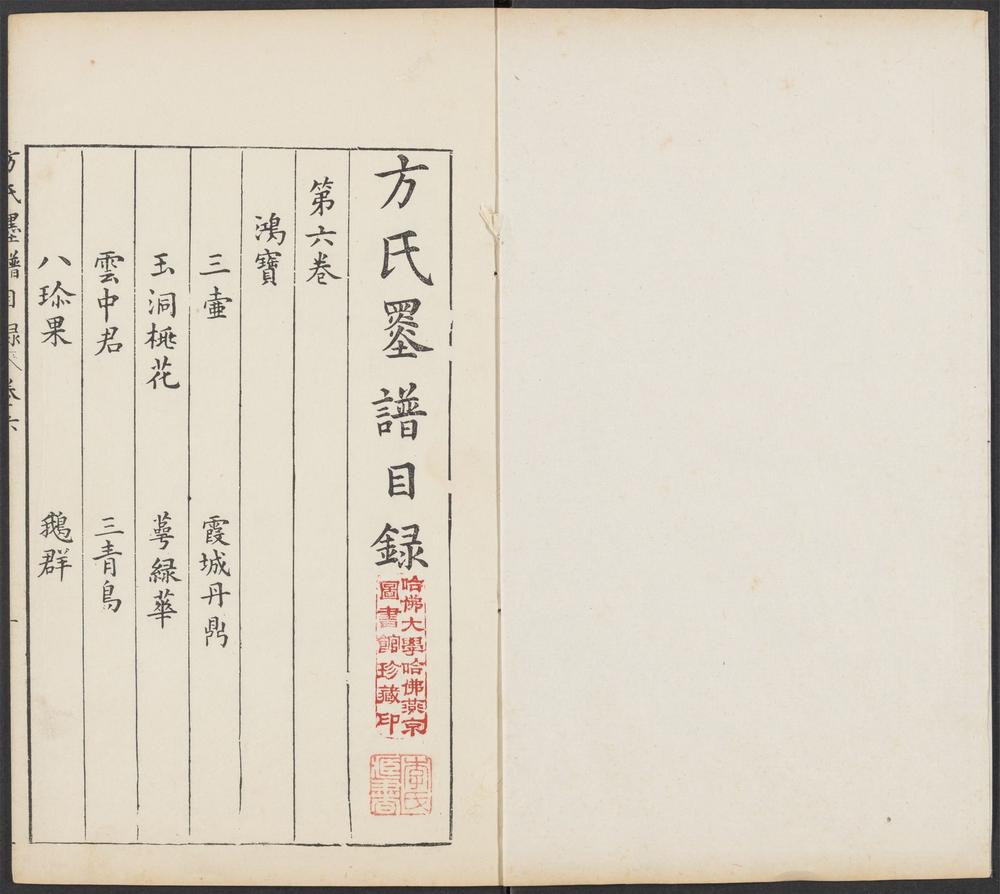 方氏墨譜目録
哈佛大學哈佛燕京
圖書館珍藏印
李氏
第六卷
鴻寶
三壷
霞城丹鼎
玉洞桃花
萼緑華
雲中君
三青鳥
八珎果
鵝群
方氏墨譜目録
卷六
一